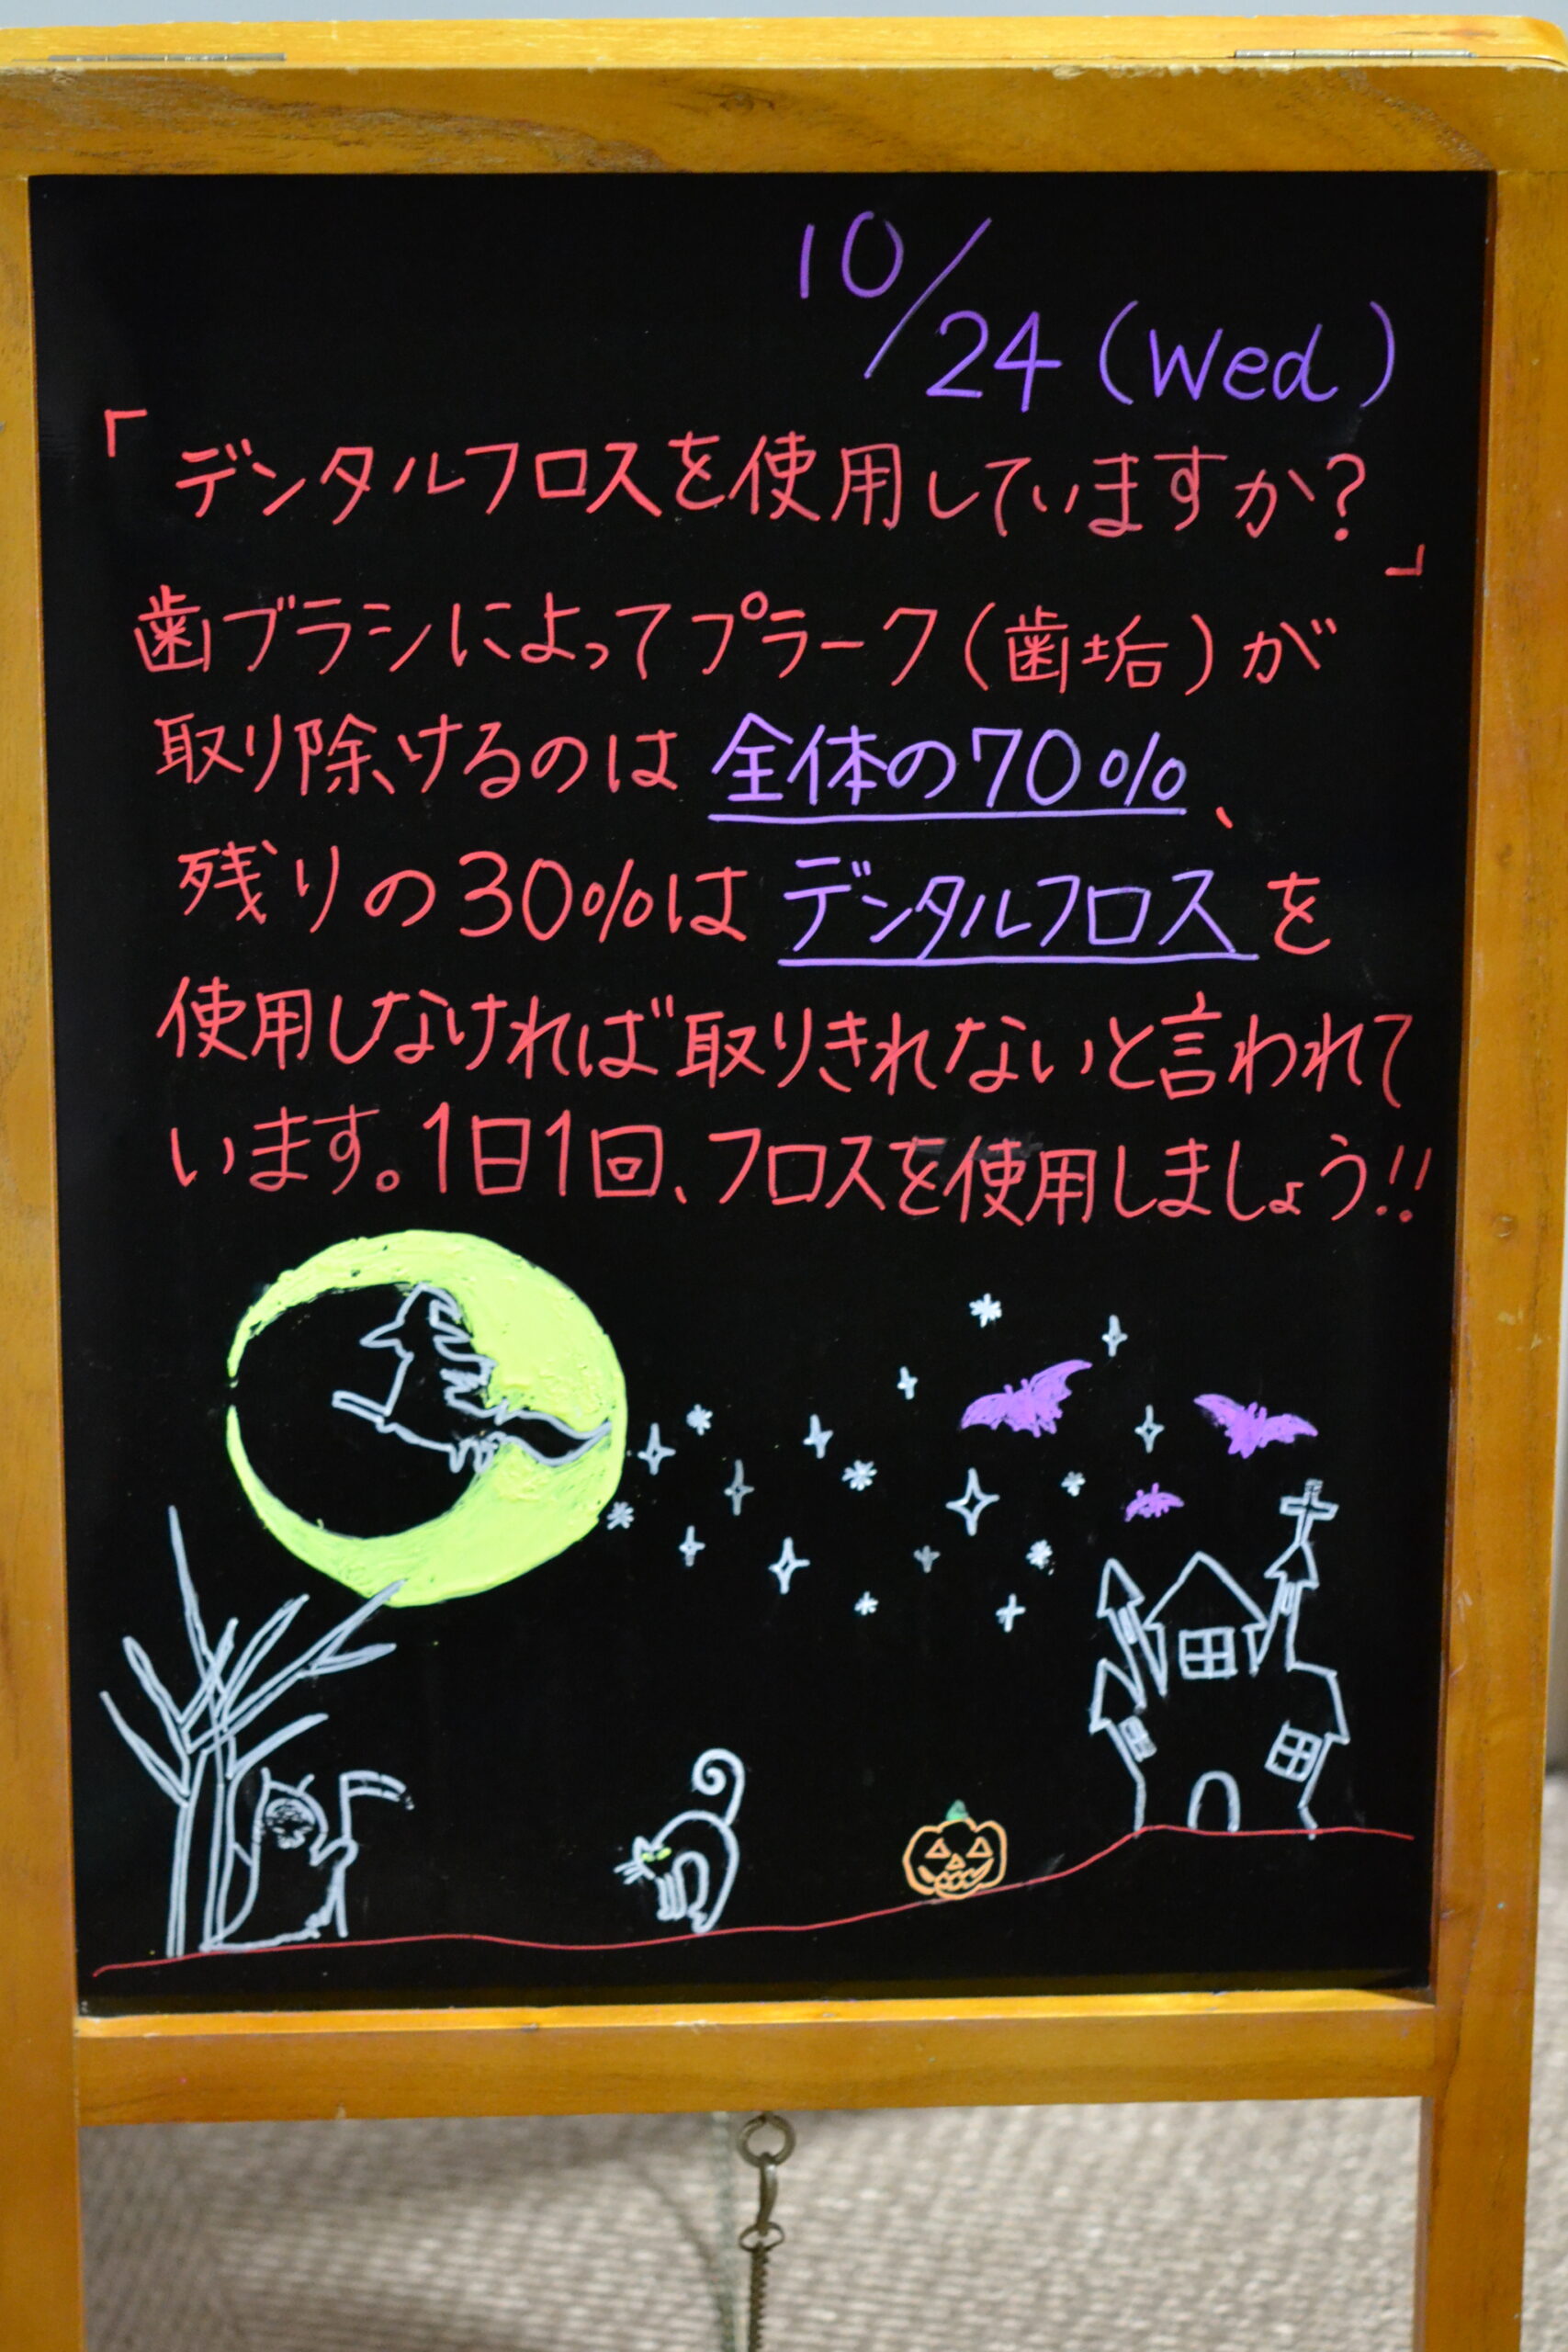 10/24(Wed)
「デンタルフロスを使用していますか?」
歯ブラシによってプラーク(歯垢)が
取り除けるのは全体の70%、
残りの30%はデンタルフロスを
使用しなければ取りきれないと言われて
います。1日1回、フロスを使用しましょう!!